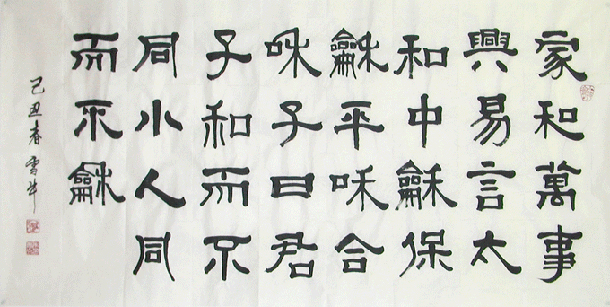 家和萬事
興易言太
和中龢保
龢平咊合
咊子曰君
子和而不
同小人同
而不龢
己丑春